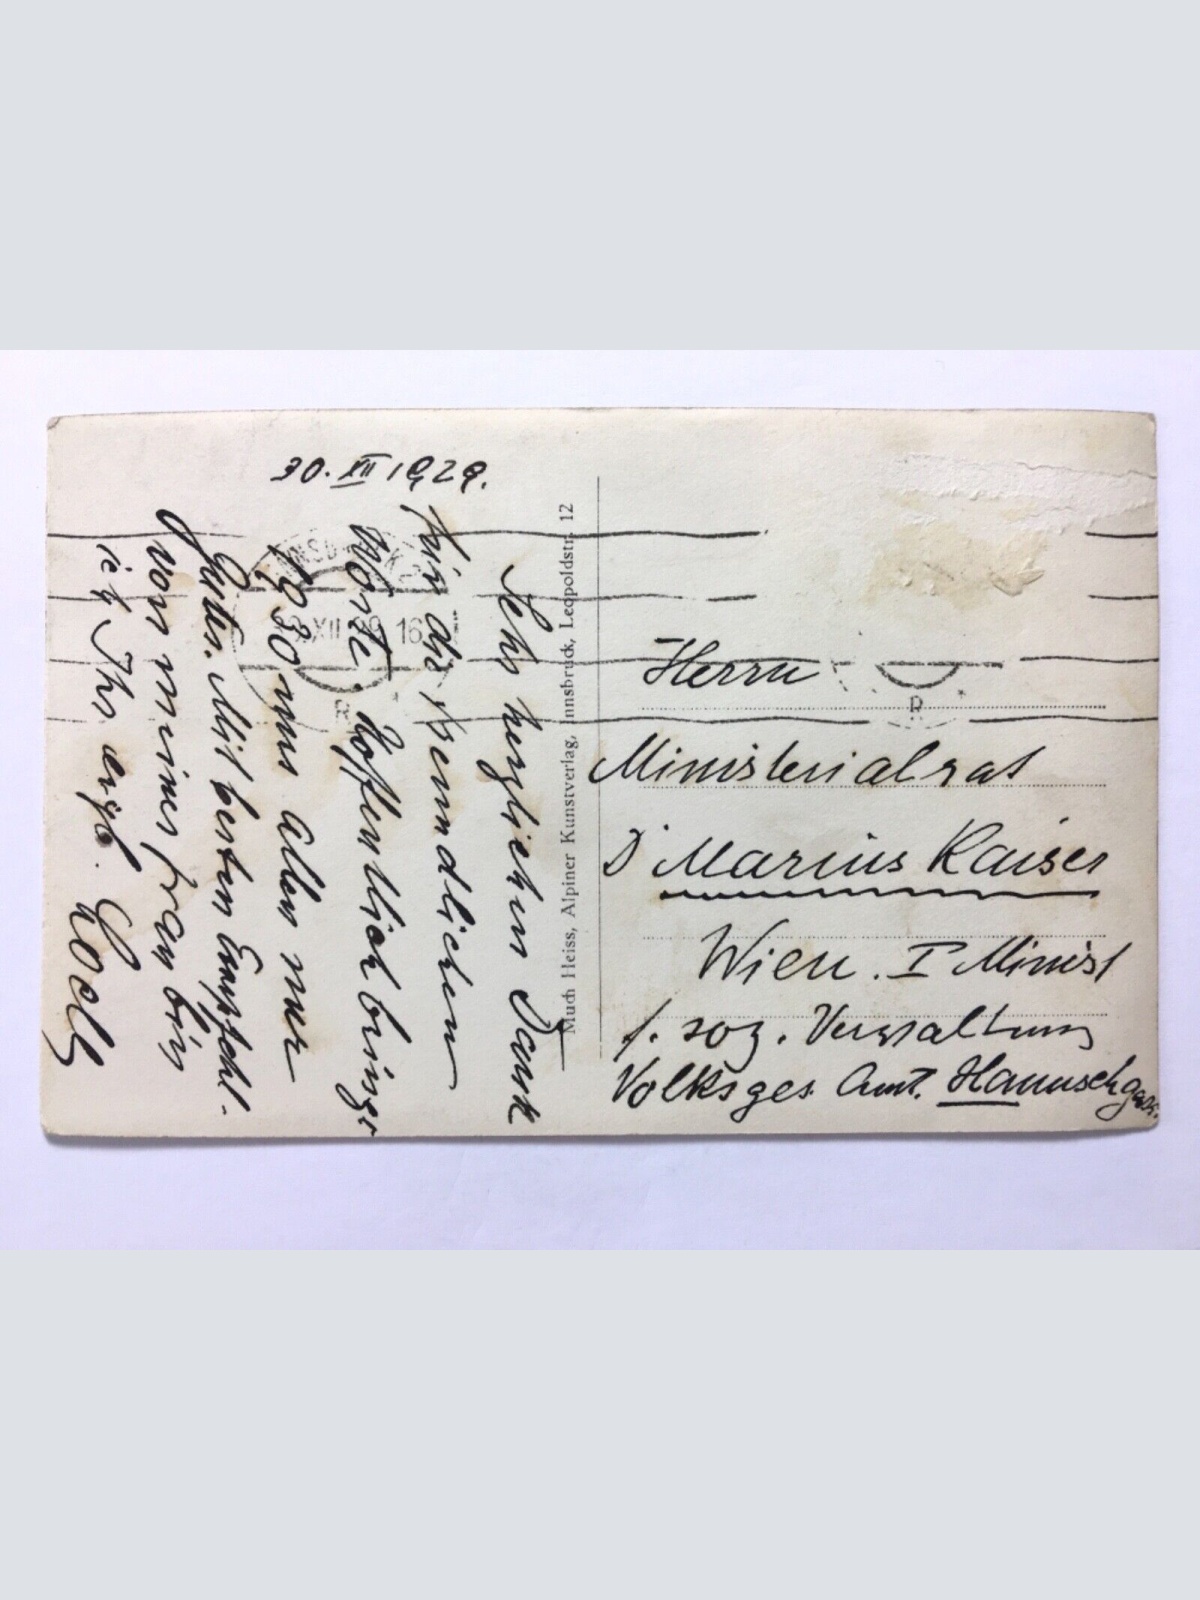 30. XII 1929.
Sehr herzlichen Dank
für die freundlichen
Worte. Hoffentlich bringt
1930 uns allen nur
Gutes. Mit besten Empfehl.
von meiner Frau bin
ich Ihr ergb.
Much Heiss, Alpiner Kunstverlag, Innsbruck, Leopoldstr. 12
XII 29 16
R
R
Herrn
Ministerialrat
Dr Marius Kaiser
Wien. I Minist
f. soz. Verwaltung
Volksges. Amt. Hanuschgasse.